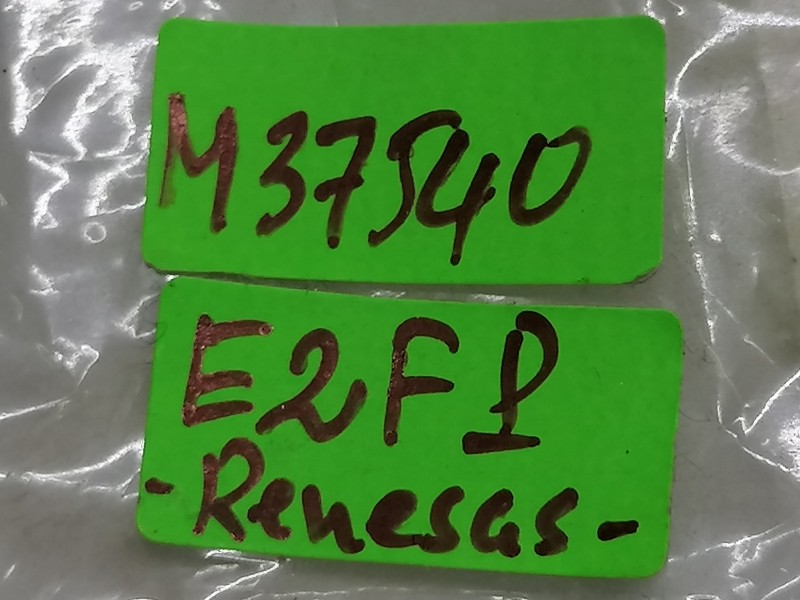 M37540
E2FP
-Renesas-